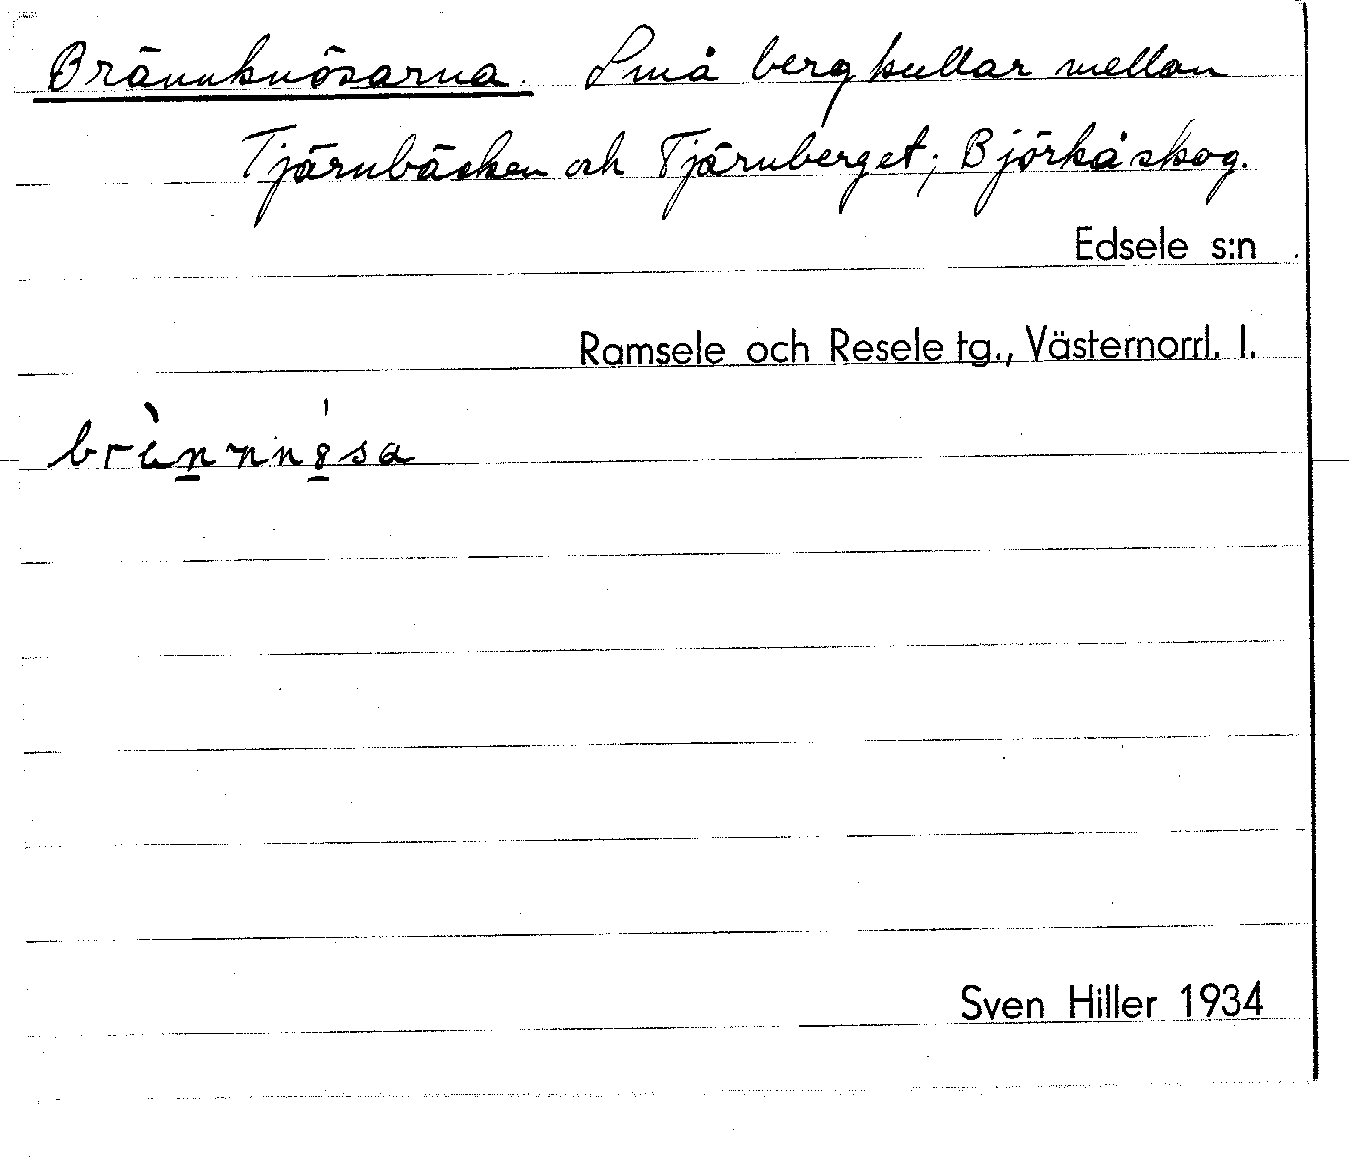 Brännknösarna. Små bergkullar mellan
Tjärnbäcken och Tjärnberget; Björkå skog.
Edsele s:n
Ramsele och Resele tg., Västernorrl. l.
Sven Hiller 1934